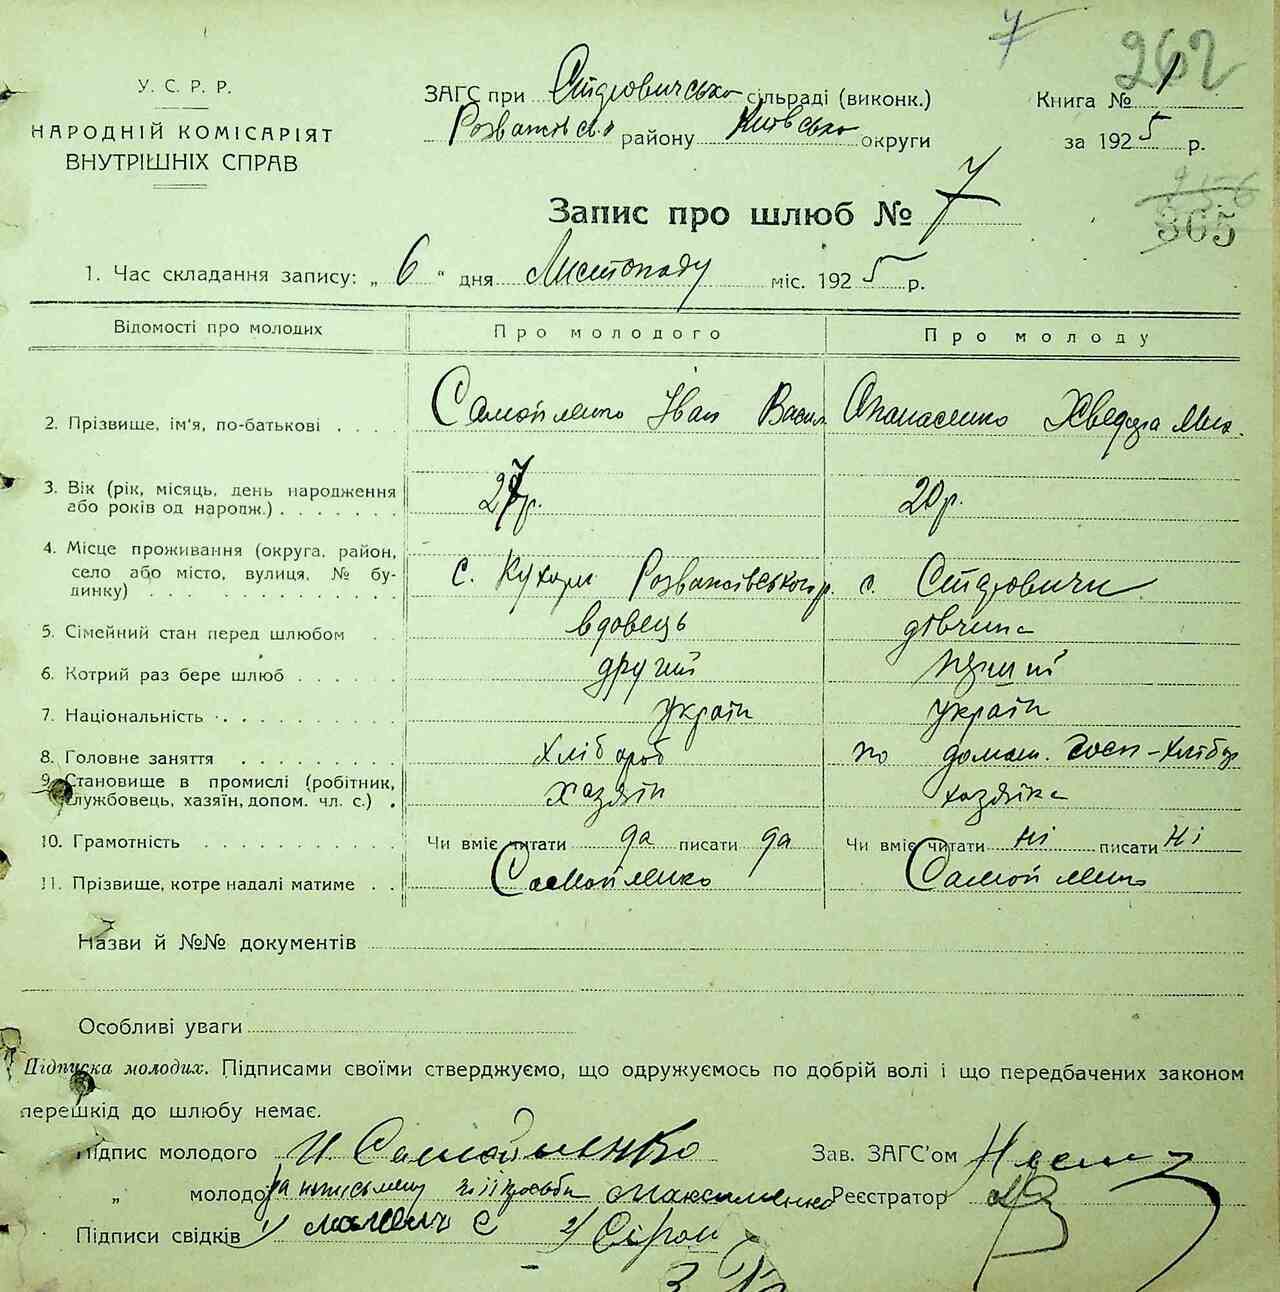 7
262
У. С. Р. Р.
НАРОДНІЙ КОМІСАРІЯТ
ВНУТРІШНІХ СПРАВ
ЗАГС при сільраді (виконк.)
району Київсько округи
Книга № 1
за 1925 р.
Запис про шлюб № 7
365
1. Час складання запису: „ 6 " дня Листопаду міс. 1925 р.
Відомості про молодих Про молодого Про молоду
2. Прізвище, ім'я, по-батькові . . . Самойленко Іван Васил Опанасенко Хведора Мих.
3. Вік (рік, місяць, день народження
або років од народж.) . . . . . . . 27р. 20р.
4. Місце проживання (округа, район,
село або місто, вулиця, № бу-
динку) . . . с. Кухари Розважівського р. с. Стдровичи
5. Сімейний стан перед шлюбом . . вдовець дівчина
6. Котрий раз бере шлюб . . . . . . другий
7. Національність . . . . . . . . . . україн україн
8. Головне заняття . . . . . . . хлібороб по домаш.
9. Становище в промислі (робітник,
службовець, хазяїн, допом. чл. с.) . хазяїн хозяїка
10. Грамотність . . . . . . . . . . Чи вміє читати да писати да Чи вміє читати ні писати ні
11. Прізвище, котре надалі матиме . . Самойленко Самойленко
Назви й №№ документів
Особливі уваги
Підписка молодих. Підписами своїми стверджуємо, що одружуємось по добрій волі і що передбачених законом
перешкід до шлюбу немає.
Підпис молодого И. Самойленко Зав. ЗАГС'ом
„ молодої Максименко Реєстратор
Підписи свідків 1) 2)
3